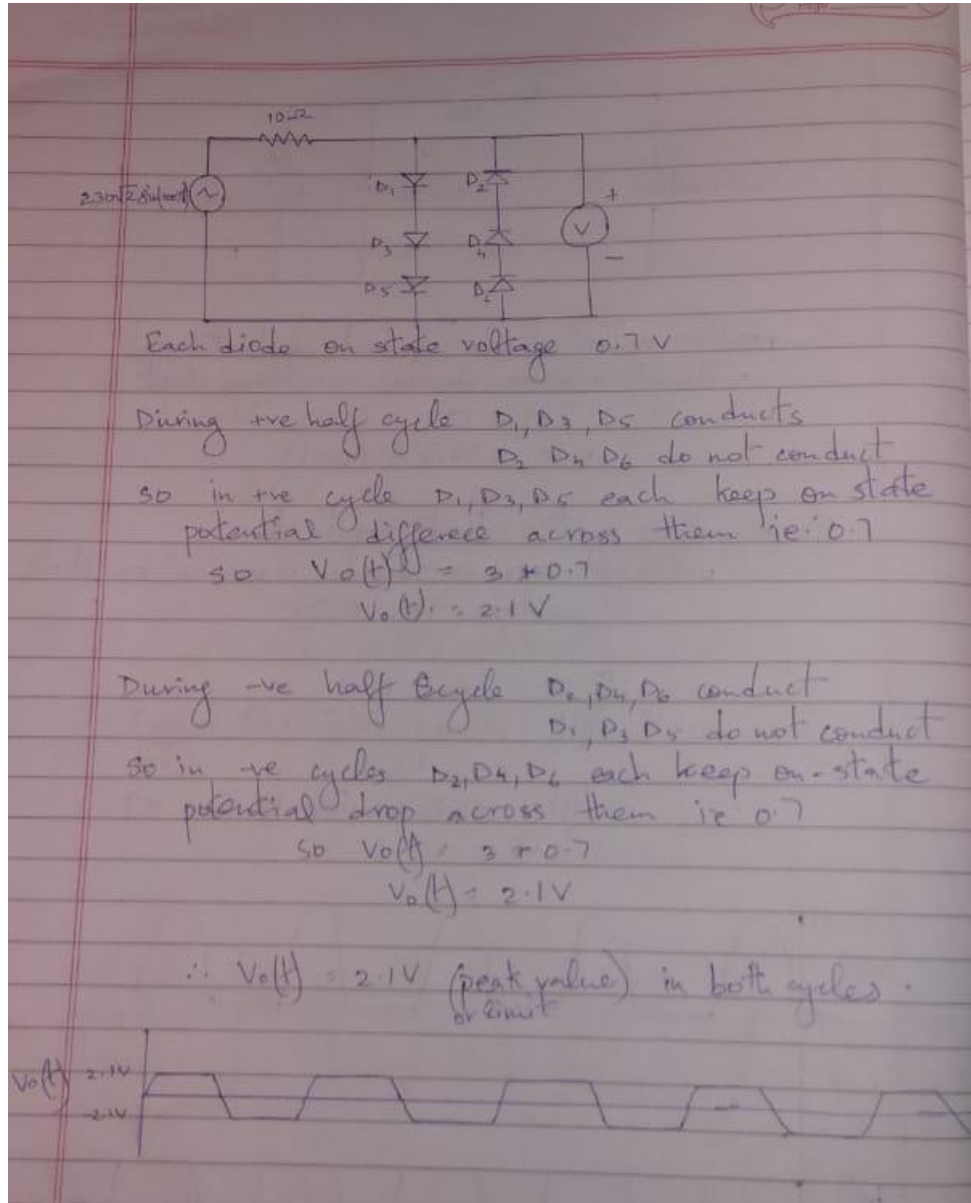 10Ω
D₁ D₂
+
V
D₃ D₄
−
D5
Each diode on state voltage 0.7 V
During +ve half cycle D₁, D₃, D5 conducts
D₂ D₄ D6 do not conduct
so in +ve cycle D₁, D₃, D5 each keep on state
potential differece across them ie. 0.7
so Vo(t) = 3 * 0.7
Vo(t). = 2.1 V
During -ve half cycle D₂, D₄, D6 conduct
D₁, D₃ D5 do not conduct
So in -ve cycles D₂, D4, D6 each keep on-state
potential drop across them ie 0.7
so Vo(t) = 3 * 0.7
Vo(t) = 2.1V
∴ Vo(t) = 2.1V (peak value) in both cycles.
or limit
Vo(t) 2.1V
-2.1V